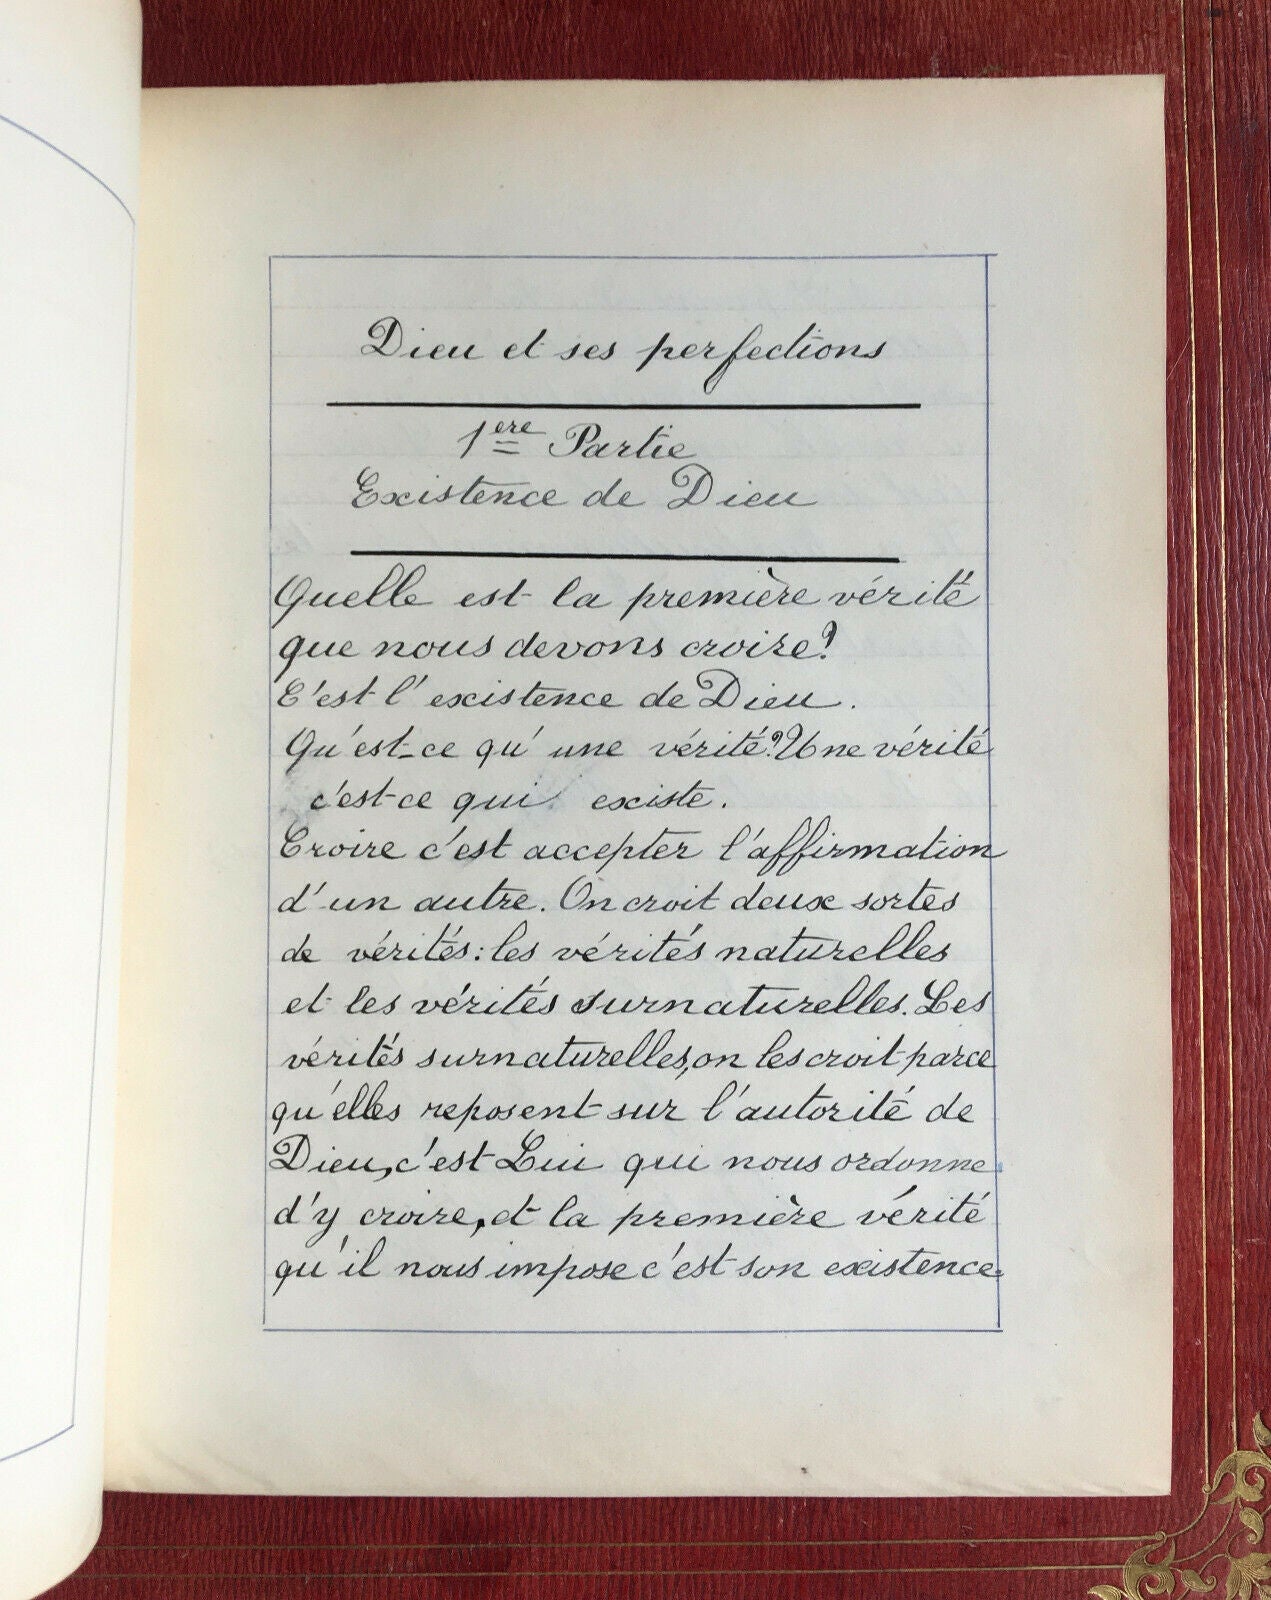 Dieu et ses perfections
1ère Partie
Existence de Dieu
Quelle est la première vérité
que nous devons croire?
C'est l'existence de Dieu.
Qu'est-ce qu'une vérité? Une vérité
c'est ce qui existe.
Croire c'est accepter l'affirmation
d'un autre. On croit deux sortes
de vérités: les vérités naturelles
et les vérités surnaturelles. Les
vérités surnaturelles, on les croit parce
qu'elles reposent sur l'autorité de
Dieu, c'est Lui qui nous ordonne
d'y croire, et la première vérité
qu'il nous impose c'est son existence.